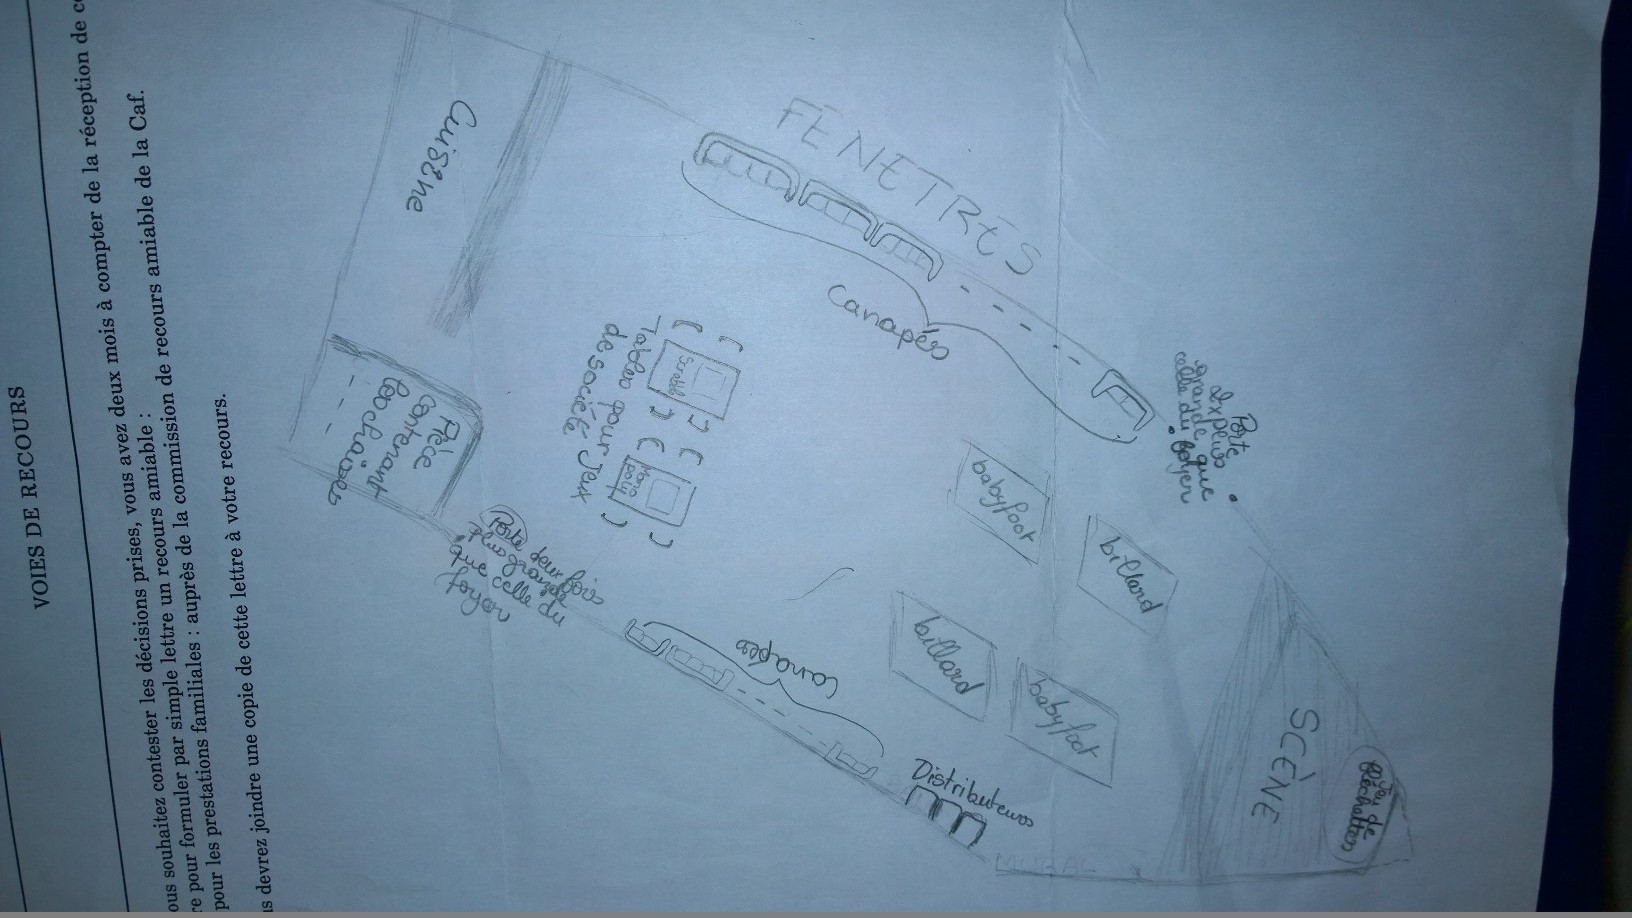 VOIES DE RECOURS
ous souhaitez contester les décisions prises, vous avez deux mois à compter de la réception de c
e pour formuler par simple lettre un recours amiable :
pour les prestations familiales : auprès de la commission de recours amiable de la Caf.
s devrez joindre une copie de cette lettre à votre recours.
Cuisene
FENETRES
canapés
Porte
2x plus
grande que
celle du foyer
Tables pour Jeux
de société
Scrable
Mono
poly
Pièce
contenant
les chaises
Porte deux fois
plus grande
que celle du
foyer
babyfoot
billard
billard
babyfoot
canapés
Distributeurs
SCÈNE
Jeu de
fléchettes
MURAL